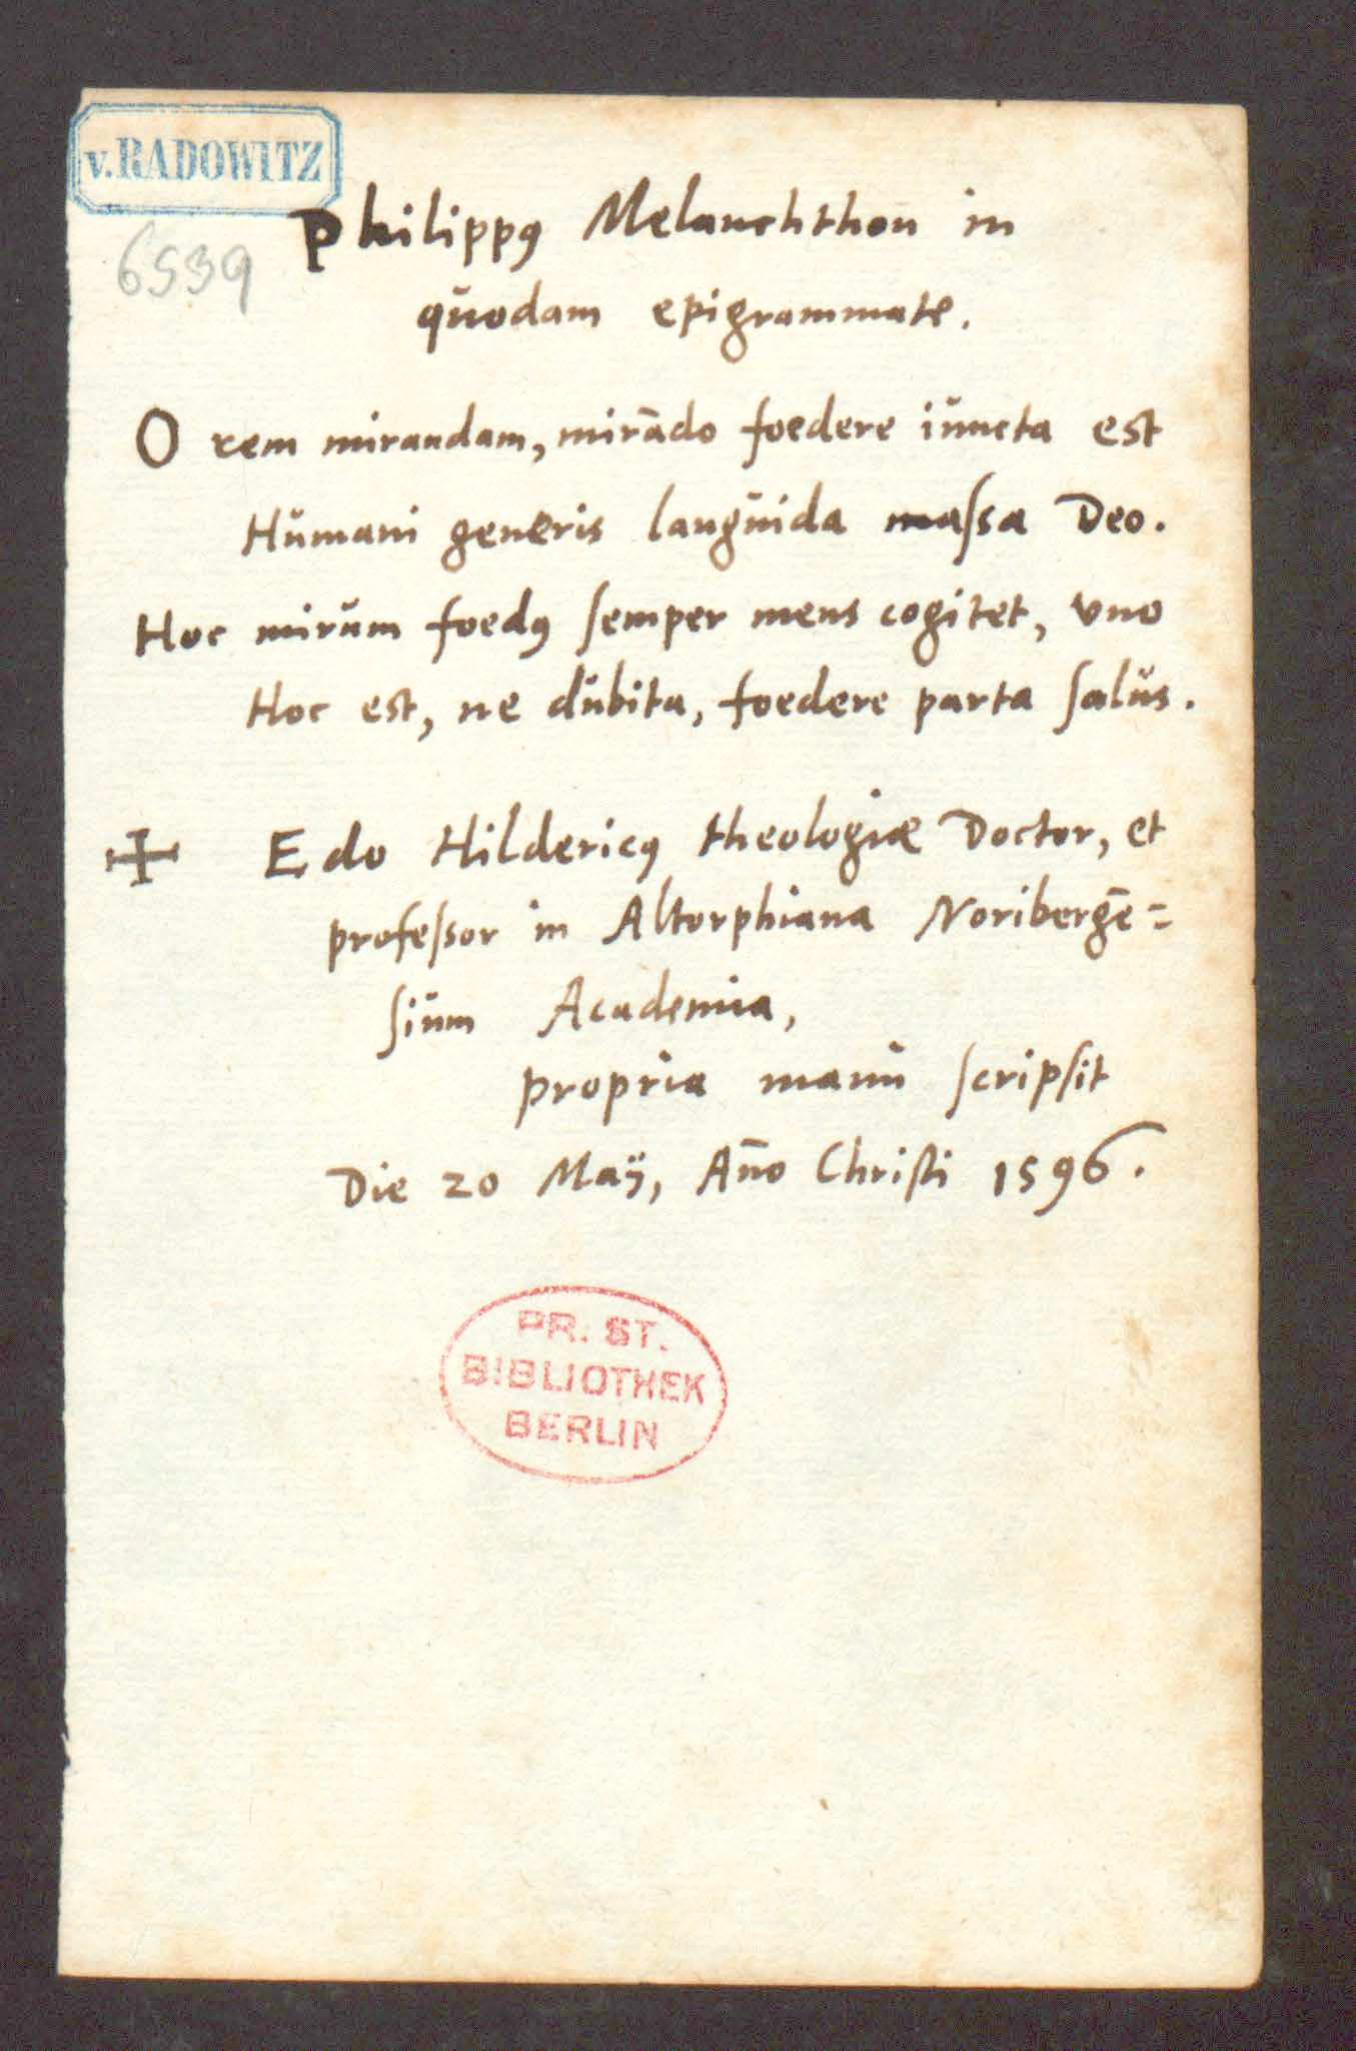 v. RADOWITZ
6539
Philippꝰ Melanchthon in
quodam epigrammate.
O rem mirandam, mirādo foedere iuncta est
Humani generis languida maſsa Deo.
Hoc mirum foedꝰ ſemper mens cogitet, vno
Hoc est, ne dubita, foedere parta ſalus.
✢ Edo Hildericꝰ theologiæ Doctor, et
profeſsor in Altorphiana Noribergē=
ſium Academia,
propria manu ſcripſit
Die 20 Maÿ, Año Chriſti 1596.
PR. ST.
BIBLIOTHEK
BERLIN